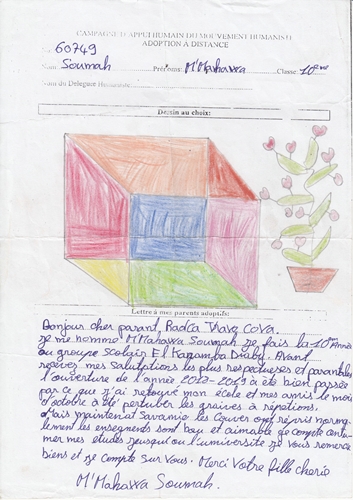 CAMPAGNE D'APPUI HUMAIN DU MOUVEMENT HUMANISTE
ADOPTION A DISTANCE
60749
Nom: Soumah Prénoms: M'Mahawa Classe: 10ème
Nom du Délégué Humaniste
Dessin au choix:
Lettre à mes parents adoptifs:
Bonjour cher parant, Radca ça va.
je me nomme M'Mahawa Soumah je fais la 10ème Année
au groupe Scolair El Diaby. Avant
recevez mes Salutations les plus respectueuses et parantales
l'ouverture de l'année à été bien passée
par ce que j'ai retouvé mon école et mes amis le mois
d'octobre à été pertuber les graives à répations.
Mais maintenat les Couver ont répris norma-
lement les ensegnents sont bau et aimable je compte contu-
mer mes etudes jusquu'au l'université je vous remerce
biens et je compte sur vous. Merci Votre fille cherie
M'Mahawa Soumah.